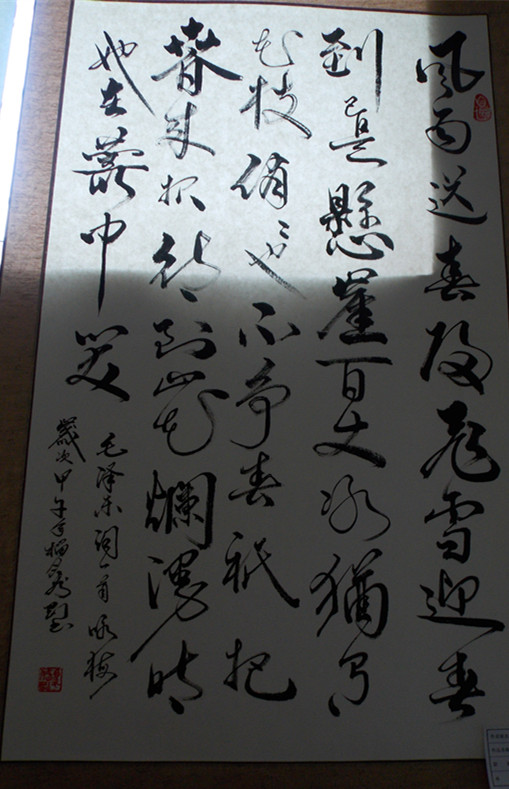 风雨送春归飞雪迎春
到已是懸崖百丈冰猶有
花枝俏〻也不争春祇把
春来报待到山花爛漫时
她在叢中笑
毛泽东词一首咏梅
歲次甲午年